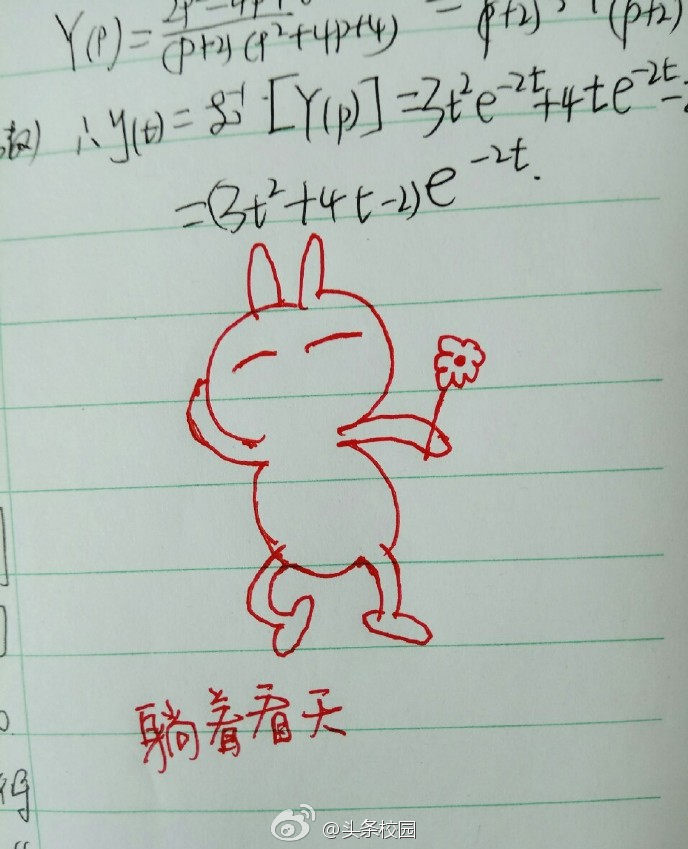 Y(p) = / (p+2)(p²+4p+4) = (p+2)³ + (p+2)
∴ y(t) = ℒ⁻¹[Y(p)] = 3t²e⁻²ᵗ+4te⁻²ᵗ−
=(3t²+4t-2)e⁻²ᵗ.
躺着看天
@头条校园